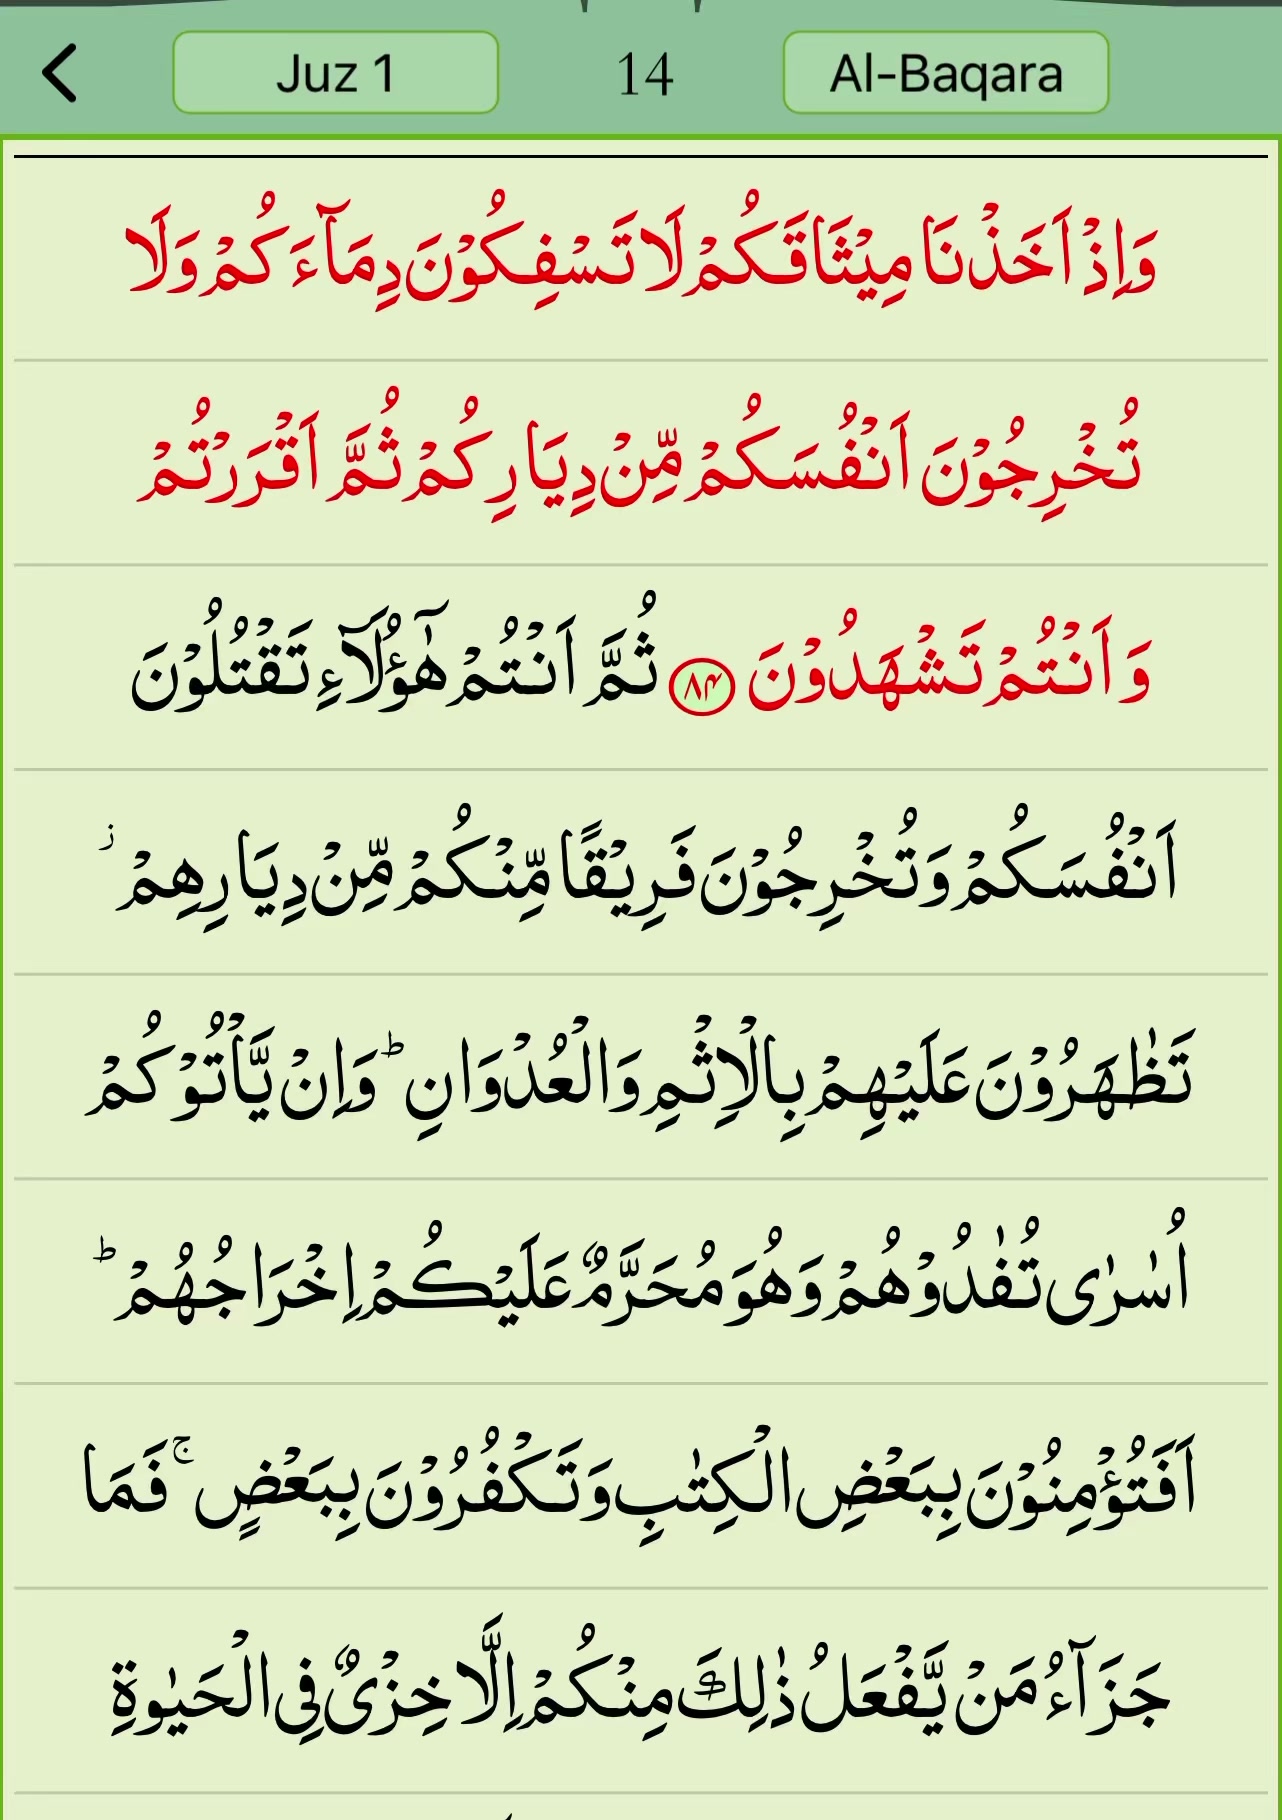 Juz 1 14 Al-Baqara
وَاِذْ اَخَذْنَا مِيْثَاقَكُمْ لَا تَسْفِكُوْنَ دِمَآءَكُمْ وَلَا
تُخْرِجُوْنَ اَنْفُسَكُمْ مِّنْ دِيَارِكُمْ ثُمَّ اَقْرَرْتُمْ
وَاَنْتُمْ تَشْهَدُوْنَ ۝۸۴ ثُمَّ اَنْتُمْ هٰٓؤُلَآءِ تَقْتُلُوْنَ
اَنْفُسَكُمْ وَتُخْرِجُوْنَ فَرِيْقًا مِّنْكُمْ مِّنْ دِيَارِهِمْ ز
تَظٰهَرُوْنَ عَلَيْهِمْ بِالْاِثْمِ وَالْعُدْوَانِ ؕ وَاِنْ يَّاْتُوْكُمْ
اُسٰرٰى تُفٰدُوْهُمْ وَهُوَ مُحَرَّمٌ عَلَيْكُمْ اِخْرَاجُهُمْ ؕ
اَفَتُؤْمِنُوْنَ بِبَعْضِ الْكِتٰبِ وَتَكْفُرُوْنَ بِبَعْضٍ ۚ فَمَا
جَزَآءُ مَنْ يَّفْعَلُ ذٰلِكَ مِنْكُمْ اِلَّا خِزْىٌ فِى الْحَيٰوةِ